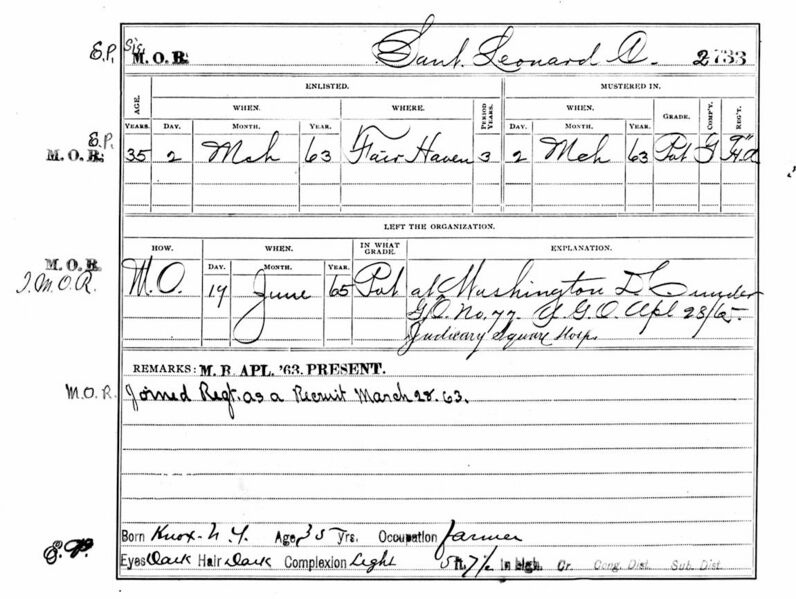 E.P. Sig.
M. O. R. Leonard A. 2733
ENLISTED. MUSTERED IN.
AGE. WHEN. WHERE. PERIOD YEARS. WHEN. GRADE. COMP'Y. REG'T.
YEARS. DAY. MONTH. YEAR. DAY. MONTH. YEAR.
E.P.
M. O. R. 35 2 Mch 63 Fair Haven 3 2 Mch 63 Pvt G 9" H.A
LEFT THE ORGANIZATION.
HOW. WHEN. IN WHAT GRADE. EXPLANATION.
DAY. MONTH. YEAR.
M. O. R. M.O. 19 June 65 Pvt at Washington D.C. under
J.M.O.R. G.O. No. 77. A.G.O. Apl 28/65.
Judicary Square Hosp.
REMARKS: M. R. APL. '63. PRESENT.
M.O.R. Joined Regt. as a Recruit March 28. 63.
Born Knox - N.Y. Age 35 Yrs. Occupation farmer
E.P. Eyes Dark Hair Dark Complexion Light 5 ft. 7 1/2 in high. Cr. Cong. Dist. Sub. Dist.